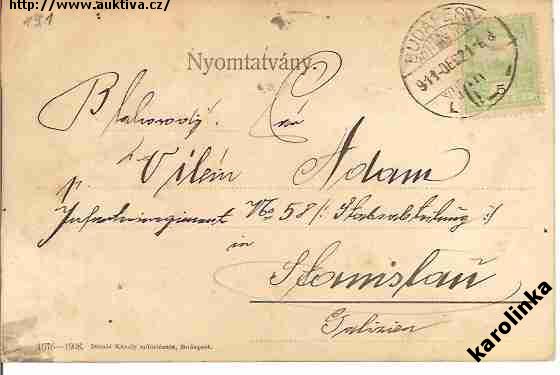 http://www.auktiva.cz/
191
Nyomtatvány.
BUDAPEST
911 DEC 21
5
Blahorodý Pán
p. Vilém Adam
Infanterieregiment No 58 /: Stabsabteilung :/
in
Stanislau
Galizien
1076—1908. Divald Károly műintézete, Budapest.
karolinka